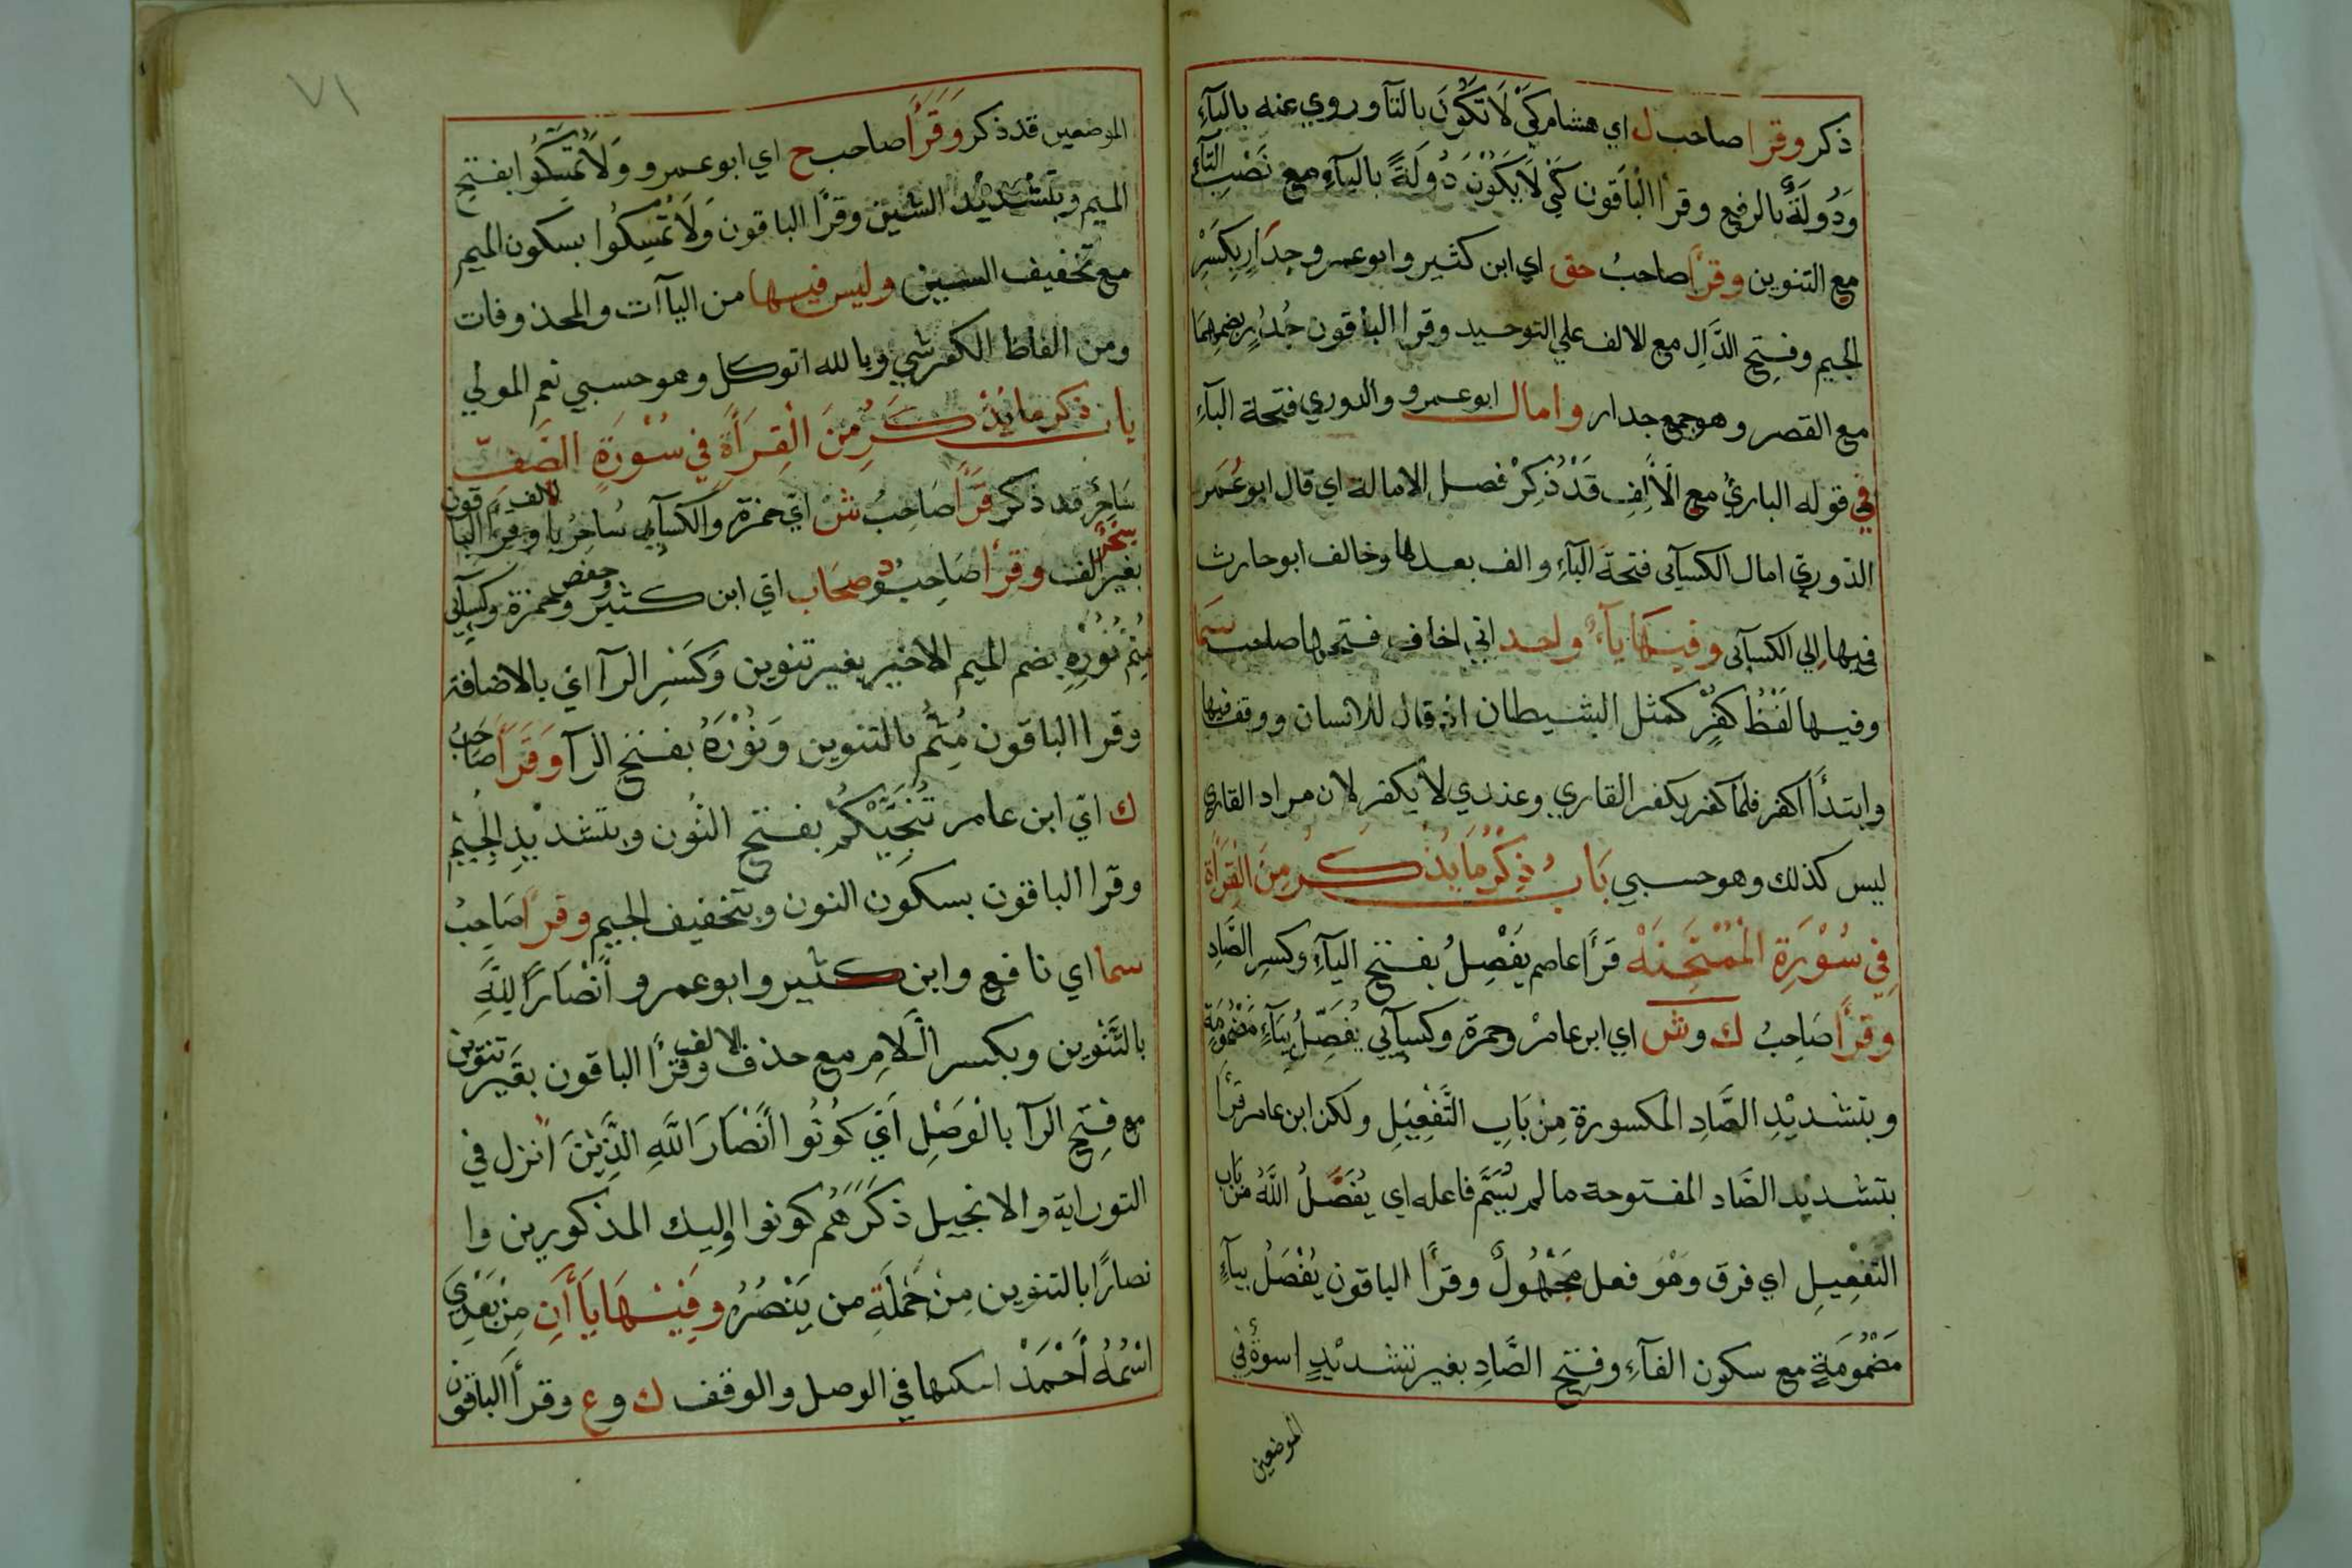 ذكر وقرا صاحب ل اي هشام كَيْ لَا تَكُونَ بالتآ وروي عنه باليآءِ
وَدُولَةٌ بالرفع وقرا الْبَاقون كَيْ لَا يَكُوْنَ دُولَةً بالياءِ مع نَصْبِ التآءِ
مع التنوين وقرأ صاحبُ حق اي ابن كثير وابو عمرو جِدَارٍ بِكَسْرِ
الجيم وفتح الدَّالِ مع الالف علي التوحيد وقرا الباقون جُدُرٍ بضمهِمَا
مع القصر وهو جمع جدار وامال ابو عمرو والدوري فتحة البآءِ
في قوله البارئُ مع الْاَلِفِ قَدْ ذُكِرْ فصل الامالة اي قال ابو عُمَر
الدّوري امال الكسآئى فتحة البآءِ والف بعدها وخالف ابو حارث
فيها الي الكسآئى وفيها يآءٌ واحد اني اخاف فتحها صاحب سَما
وفيها لَفْظُ كفرٍ كمثل الشيطان اذ قال للانسان ووقف فيها
وابتدأ اكفر فلما كفر يكفر القاري وعندي لا يكفر لان مراد القاري
ليس كذلك وهو حسبي بَابُ ذِكْرِ مَا يُذْكَرُ مِنَ الْقِرَأةِ
فِي سُوْرَةِ الْمُمْتَحِنَهْ قَرَأَ عاصم يَفْصِلُ بفتح اليآءِ وكسرِ الصَّادِ
وَقَرَأَ صَاحِبُ ك وش اي ابن عامرْ وحمزة وكسآئي يُفَصِّلُ بيَآءٍ مَضْمُومَةٍ
وبتشديْدِ الصَّادِ المكسورة مِنْ بَابِ التَّفْعِيْلِ ولكن ابن عامر قرأ
بتشديْد الصَّاد المفتوحة ما لم يُسَمَّ فاعله اي يُفَصَّلُ اللَّهُ من باب
التفْعِيلِ اي فرق وَهُوَ فعل مَجْهُولٌ وقرأ الباقون يُفْصَلُ بيآءٍ
مَضْمُومَةٍ مع سكون الفآءِ وفتحِ الصَّادِ بغير تشديْدٍ اسوةٌ في
الموضعين
٧١
الموضعين قد ذكر وَقَرَأَ صاحب ح اي ابو عمرو وَلَا تُمَسِّكُوا بفتح
الميم وبتَشْدِيْد السّين وقرأ الباقون وَلَا تُمْسِكُوا بسكون الميم
مع تخفيف السين وليس فيها من اليآآت والمحذوفات
ومن الفاظ الكفر شي وبالله اتوكل وهو حسبي نعم المولي
باب ذكر ما يُذْكَرُ مِنَ الْقِرَأةِ فِي سُوْرَةِ الصَّفِّ
سَاحِرٌ قد ذكر قَرَأَ صَاحِبُ شْ ايّ حمزة والكسآئي سَاحِرٌ بالالف وقرأ الباقون
سِحْرٌ بغير الف وقرأ صَاحِبُ د وصِحَاب ايّ ابن كثير وحفص وحمزة وكسآئي
مُتِمُّ نُوْرِهِ بضم الميم الاخير بغير تنوين وَكَسْرِ الرآ اي بالاضافة
وقرا الباقون مُتِمٌّ بالتنوين وَنُوْرَهُ بفتح الرآ وَقَرَأَ صَاحِبُ
ك ايّ ابن عامر تُنَجِّيْكُمْ بفتح النُون وبتشديْدِ الجِيْم
وقرا الباقون بسكون النون وبتخفيف الجيم وقرأ صَاحِبُ
سما اي نافع وابن كثير وابو عمرو أَنْصَارًا لِلَّهِ
بالتَّنْوين وبكسر الْلَامِ مع حذف الالف وقرأ الباقون بغير تنوين
مع فتحِ الرآ بالْوَصْلِ أَيّ كُوْنُوا أَنْصَارَ اللَّهِ الَّذِيْنَ انزل في
التوراية والانجيل ذكَرَهُم كونوا اوليك المذكورين وا
نصارًا بالتنوين مِنْ جُمْلَةِ من يَنْصُرُ وَفِيْهَا يَاأَنِ مِنْ بَعْدِيَ
اسْمُهُ أَحْمَدْ اسكنها في الوصل والوقف ك وع وقرأ الباقون